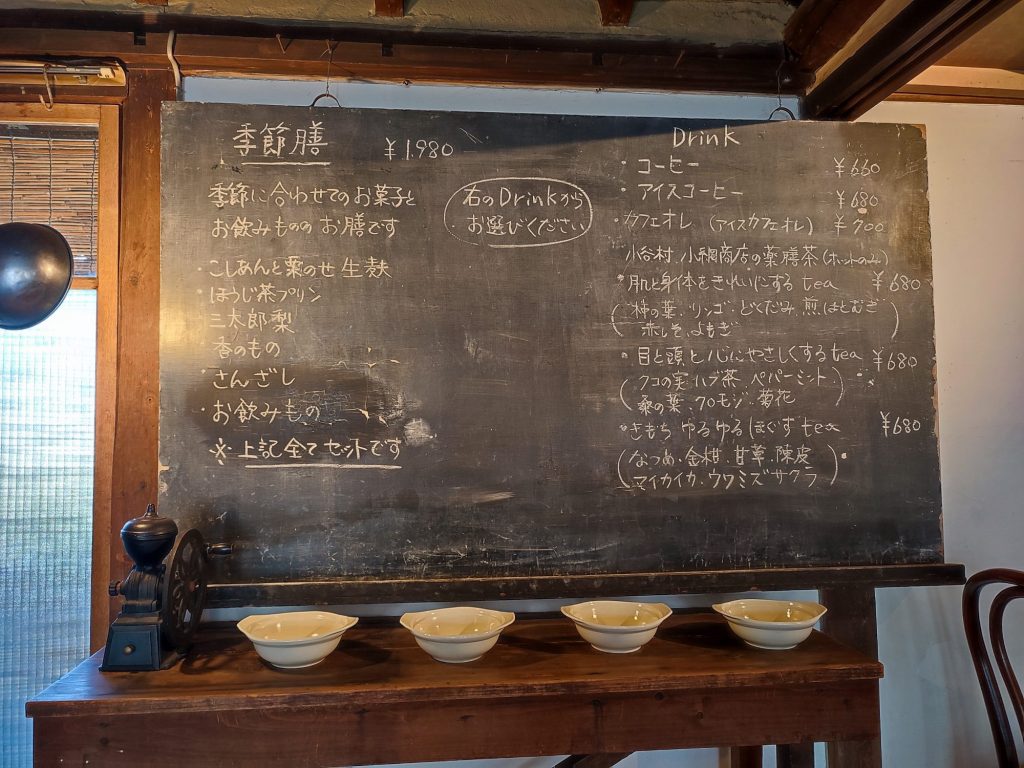 季節膳 ¥1.980
季節に合わせてのお菓子と
お飲みものの お膳です
・こしあんと栗のせ 生麸
・ほうじ茶プリン
・三太郎梨
・香のもの
・さんざし
・お飲みもの
※上記全てセットです
右のDrinkから
お選びください
Drink
・コーヒー ¥660
・アイスコーヒー ¥680
・カフェオレ (アイスカフェオレ) ¥700
小谷村、小綱商店の薬膳茶(ホットのみ)
・肌と身体をきれいにする tea ¥680
(柿の葉、リンゴ・どくだみ、煎はとむぎ
赤しそ、よもぎ)
・目と頭と心にやさしくするtea ¥680
(クコの実・ハブ茶、ペパーミント・
桑の葉、クロモジ・菊花)
・きもち ゆるゆるほぐす tea ¥680
(なつめ・金柑、甘草、陳皮
マイカイカ・ウワミズザクラ)